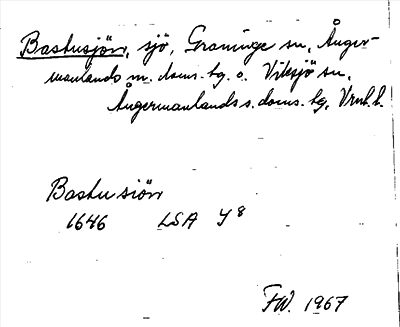 Bastusjön, sjö, Graninge sn, Ånger-
manlands m. doms. tg. o. Viksjö sn,
Ångermanlands s. doms. tg, Vrnl. l.
Bastu siön
1646 LSA Y 8
FW. 1967